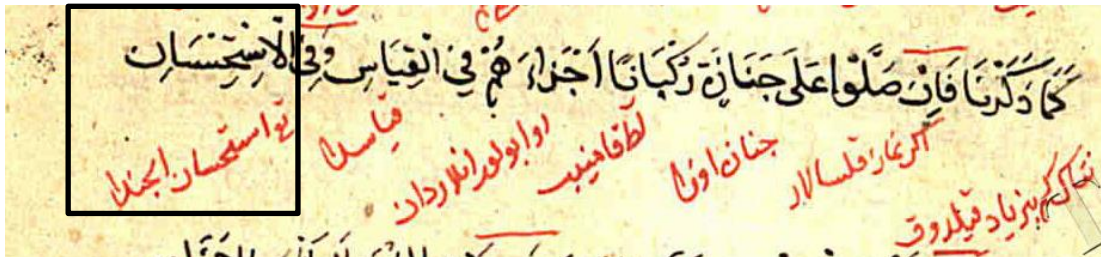 كَمَا ذَكَرْنَا فَاِنْ صَلَّوْا عَلَى جَنَازَة رُكْبَانًا اَجْزَاءَ هُمْ فِي الْقِيَاسِ وَفِي الْاِسْتِحْسَانِ
كم بيز ياد قيلدوق اكر نماز قلسالار جنازه اوزا مينيب روا بولور انلاردان قياسدا استحسان ايجندا